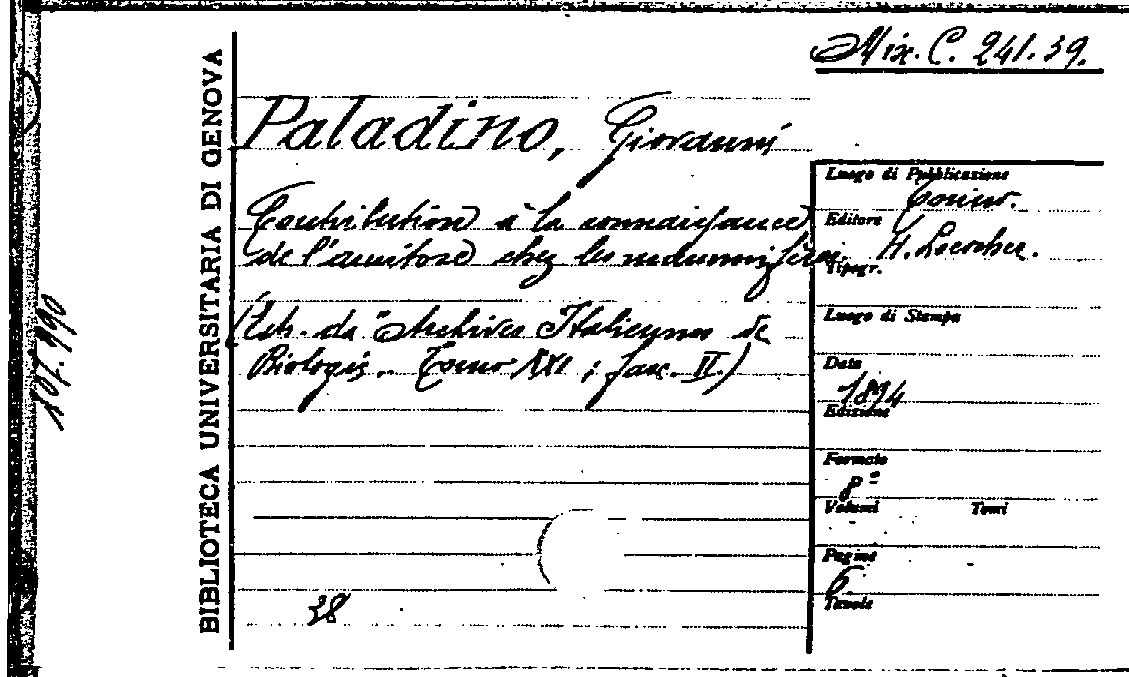 Mix. C. 241.39.
BIBLIOTECA UNIVERSITARIA DI GENOVA
Paladino, Giovanni
Contribution à la connaissance
de l'amitose chez les mammifères.
(Estr. da "Archives Italiennes de
Biologie. Tomo XXI ; fasc. II.)
38
Luogo di Pubblicazione
Torino.
Editore
H. Loescher.
Tipogr.
Luogo di Stampa
Data
1894
Edizione
Formato
8º
Volumi Tomi
Pagine
6
Tavole